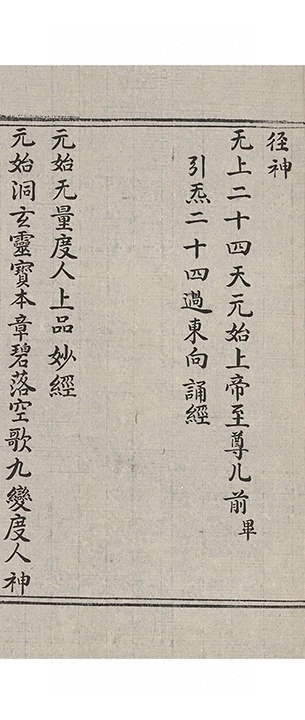 径神
无上二十四天元始上帝至尊几前畢
引炁二十四過東向誦經
元始无量度人上品妙經
元始洞玄靈寶本章碧落空歌九變度人神